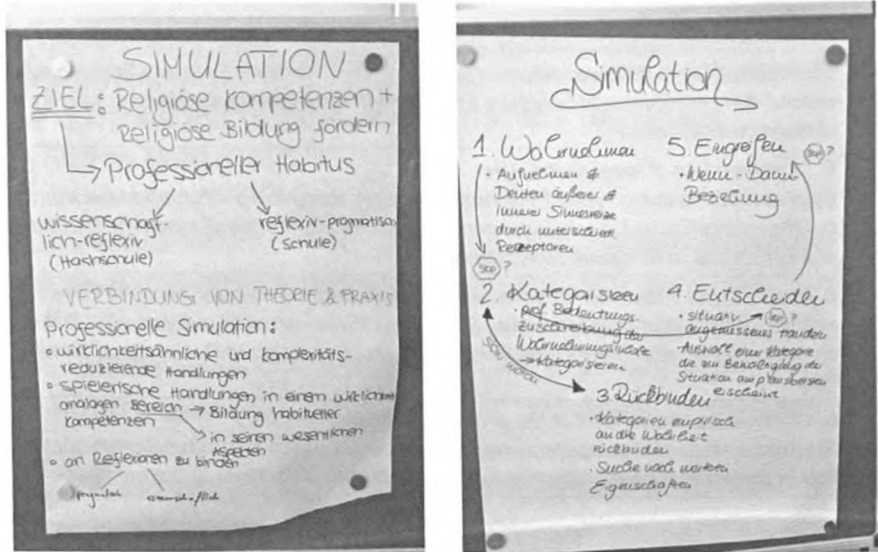 SIMULATION
ZIEL: Religiöse Kompetenzen +
Religiöse Bildung fördern
→ Professioneller Habitus
wissenschaft-
lich-reflexiv
(Hochschule)
reflexiv-pragmatisch
(Schule)
VERBINDUNG VON THEORIE & PRAXIS
Professionelle Simulation:
wirklichkeitsähnliche und komplexitäts-
reduzierende Handlungen
spielerische Handlungen in einem wirklichkeits
analogen Bereich → Bildung habitueller
Kompetenzen
→ in seinen wesentlichen
Aspekten
an Reflexionen zu binden
pragmatisch
wissenschaftlich
Simulation
1. Wahrnehmen
• Aufnehmen &
Deuten äußerer &
innerer Sinnesreize
durch
Rezeptoren
STOP ?
2. Kategorisieren
• prof. Bedeutungs-
zuschreibung der
→ Kategorisieren
3. Rückbinden
• Kategorien empirisch
an die
rückbinden
• Suche nach weiteren
Eigenschaften
4. Entscheiden
• situativ
angemessenes Handeln
• Auswahl einer Kategorie
die zur Bewältigung der
Situation am plausibelsten
erscheint
STOP ?
5. Eingreifen
• Wenn - Dann
Beziehung
STOP ?